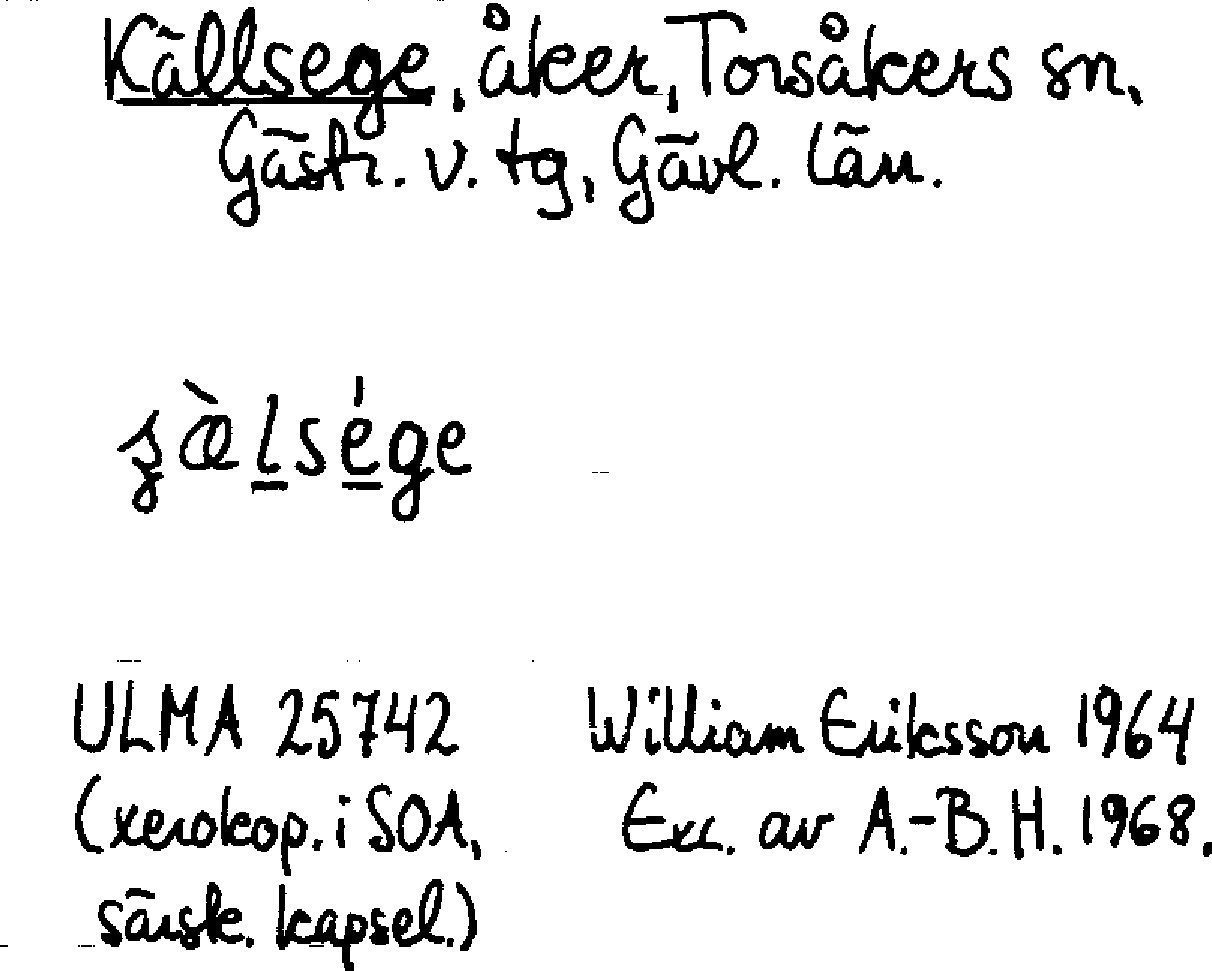 Källsege, åker, Torsåkers sn,
Gästr. v. tg, Gävl. län.
ʂæ̀l̲sé̲ge
ULMA 25742 William Eriksson 1964
(xerokop. i SOA, Exc. av A.-B.H. 1968.
särsk. kapsel.)